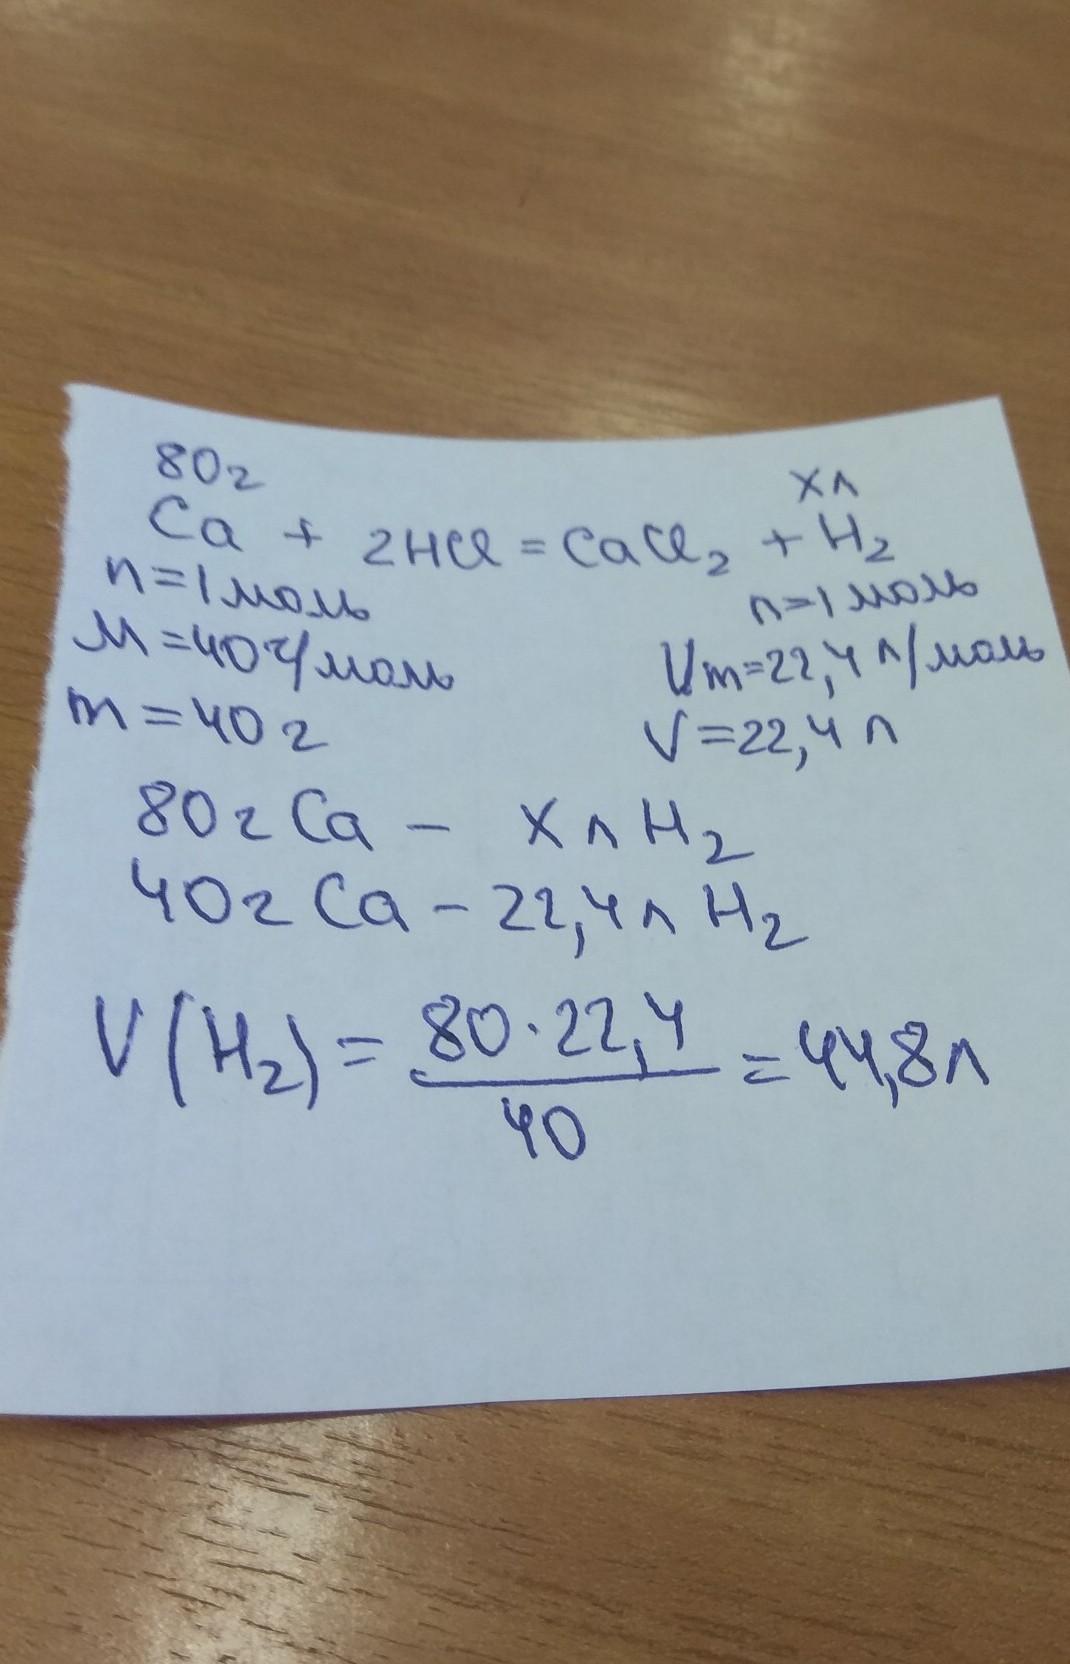 80г хл
Ca + 2HCl = CaCl₂ + H₂
n=1моль n=1моль
M=40г/моль Vm=22,4 л/моль
m=40г V=22,4 л
80г Ca - х л H₂
40г Ca - 22,4л H₂
V(H₂) = 80·22,4 / 40 = 44,8л